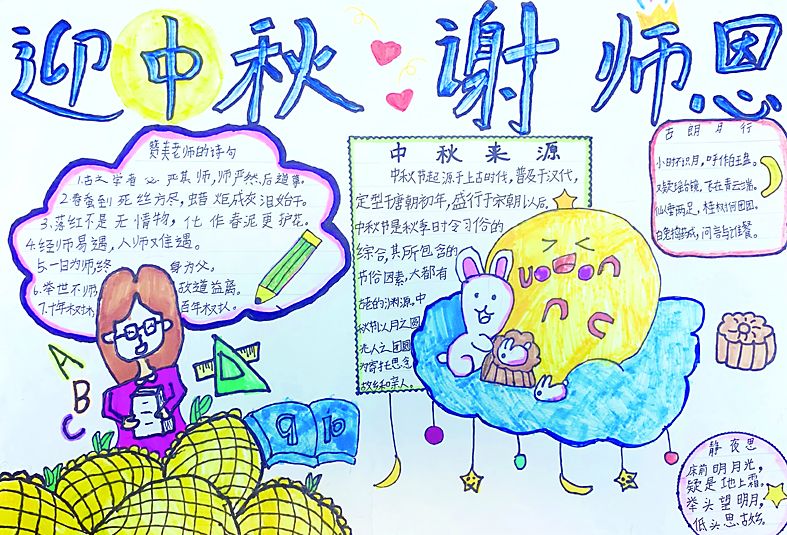 迎中秋·谢师恩
赞美老师的诗句
1.古之学者必严其师,师严然后道尊。
2.春蚕到死丝方尽,蜡炬成灰泪始干。
3.落红不是无情物,化作春泥更护花。
4.经师易遇,人师难遇。
5.一日为师,终身为父。
6.举世不师,故道益离。
7.十年树木,百年树人。
A
B
C
9 10
中秋来源
中秋节起源于上古时代,普及于汉代,
定型于唐朝初年,盛行于宋朝以后。
中秋节是秋季时令习俗的
综合,其所包含的
节俗因素,大都有
古老的渊源。中
秋节以月之圆
兆人之团圆
为寄托思念
故乡和亲人。
古朗月行
小时不识月,呼作白玉盘。
又疑瑶台镜,飞在青云端。
仙人垂两足,桂树何团团。
白兔捣药成,问言与谁餐。
静夜思
床前明月光,
疑是地上霜。
举头望明月,
低头思故乡。